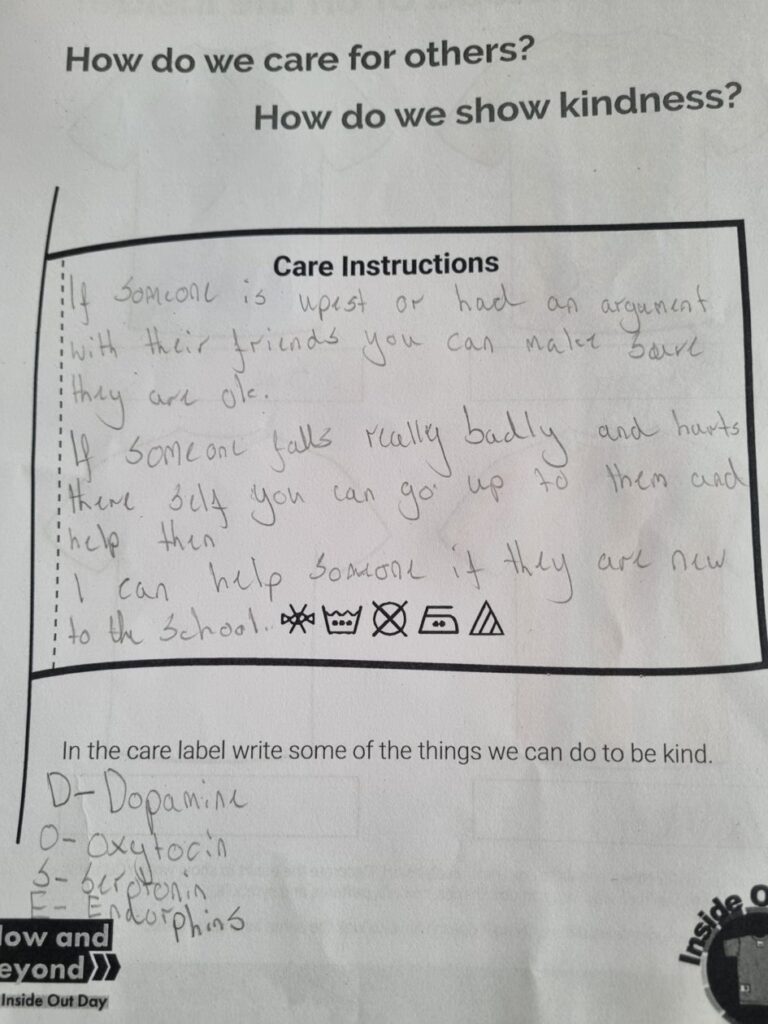 How do we care for others?
How do we show kindness?
Care Instructions
If someone is upest or had an argument
with their friends you can make saure
they are ok.
If someone falls really badly and harts
there self you can go up to them and
help then
I can help someone if they are new
to the school.
In the care label write some of the things we can do to be kind.
D- Dopamine
O- Oxytocin
S- Serotonin
E- Endorphins
Now and
eyond
Inside Out Day
Inside O